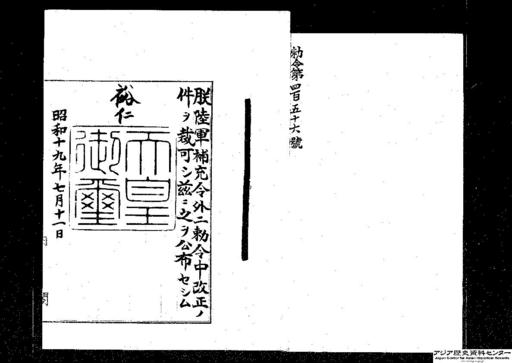 勅令第四百五十六號
朕陸軍補充令外二勅令中改正ノ
件ヲ裁可シ茲ニ之ヲ公布セシム
裕仁
天皇
御璽
昭和十九年七月十一日
内閣
アジア歴史資料センター
Japan Center for Asian Historical Records